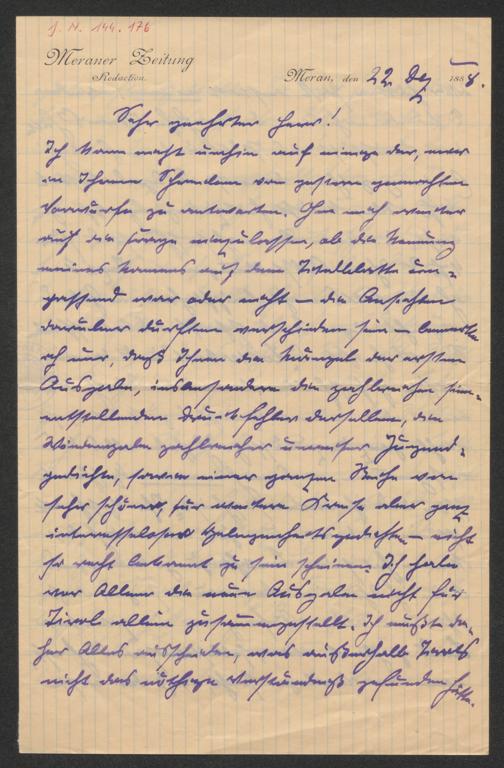 J. N. 144.176
Meraner Zeitung
Redaction.
Meran, den 22. Dez 1888.
Sehr geehrter Herr!
Ich kann nicht umhin auf einige der, mir
in Ihrem Schreiben von gestern gemachten
Vorwürfe zu antworten. Ohne mich weiter
auf die Frage einzulassen, ob die Nennung
meines Namens auf dem Titelblatte un-
passend war oder nicht – die Ansichten
darüber dürften verschieden sein – bemerke
ich nur, daß Ihnen die Mängel der ersten
Ausgabe, insbesondere die zahlreichen sinn-
entstellenden Druckfehler derselben, die
Wiedergabe zahlreicher unreifer Jugend-
gedichte, sowie einer ganzen Reihe von
sehr schönen, für weitere Kreise aber ganz
interesselosen Gelegenheitsgedichten – nicht
so recht bekannt zu sein scheinen. Ich habe
vor Allem die neue Ausgabe nicht für
Tirol allein zusammengestellt. Ich mußte da-
her Alles ausscheiden, was außerhalb Tirols
nicht das nöthige Verständniß gefunden hätte.